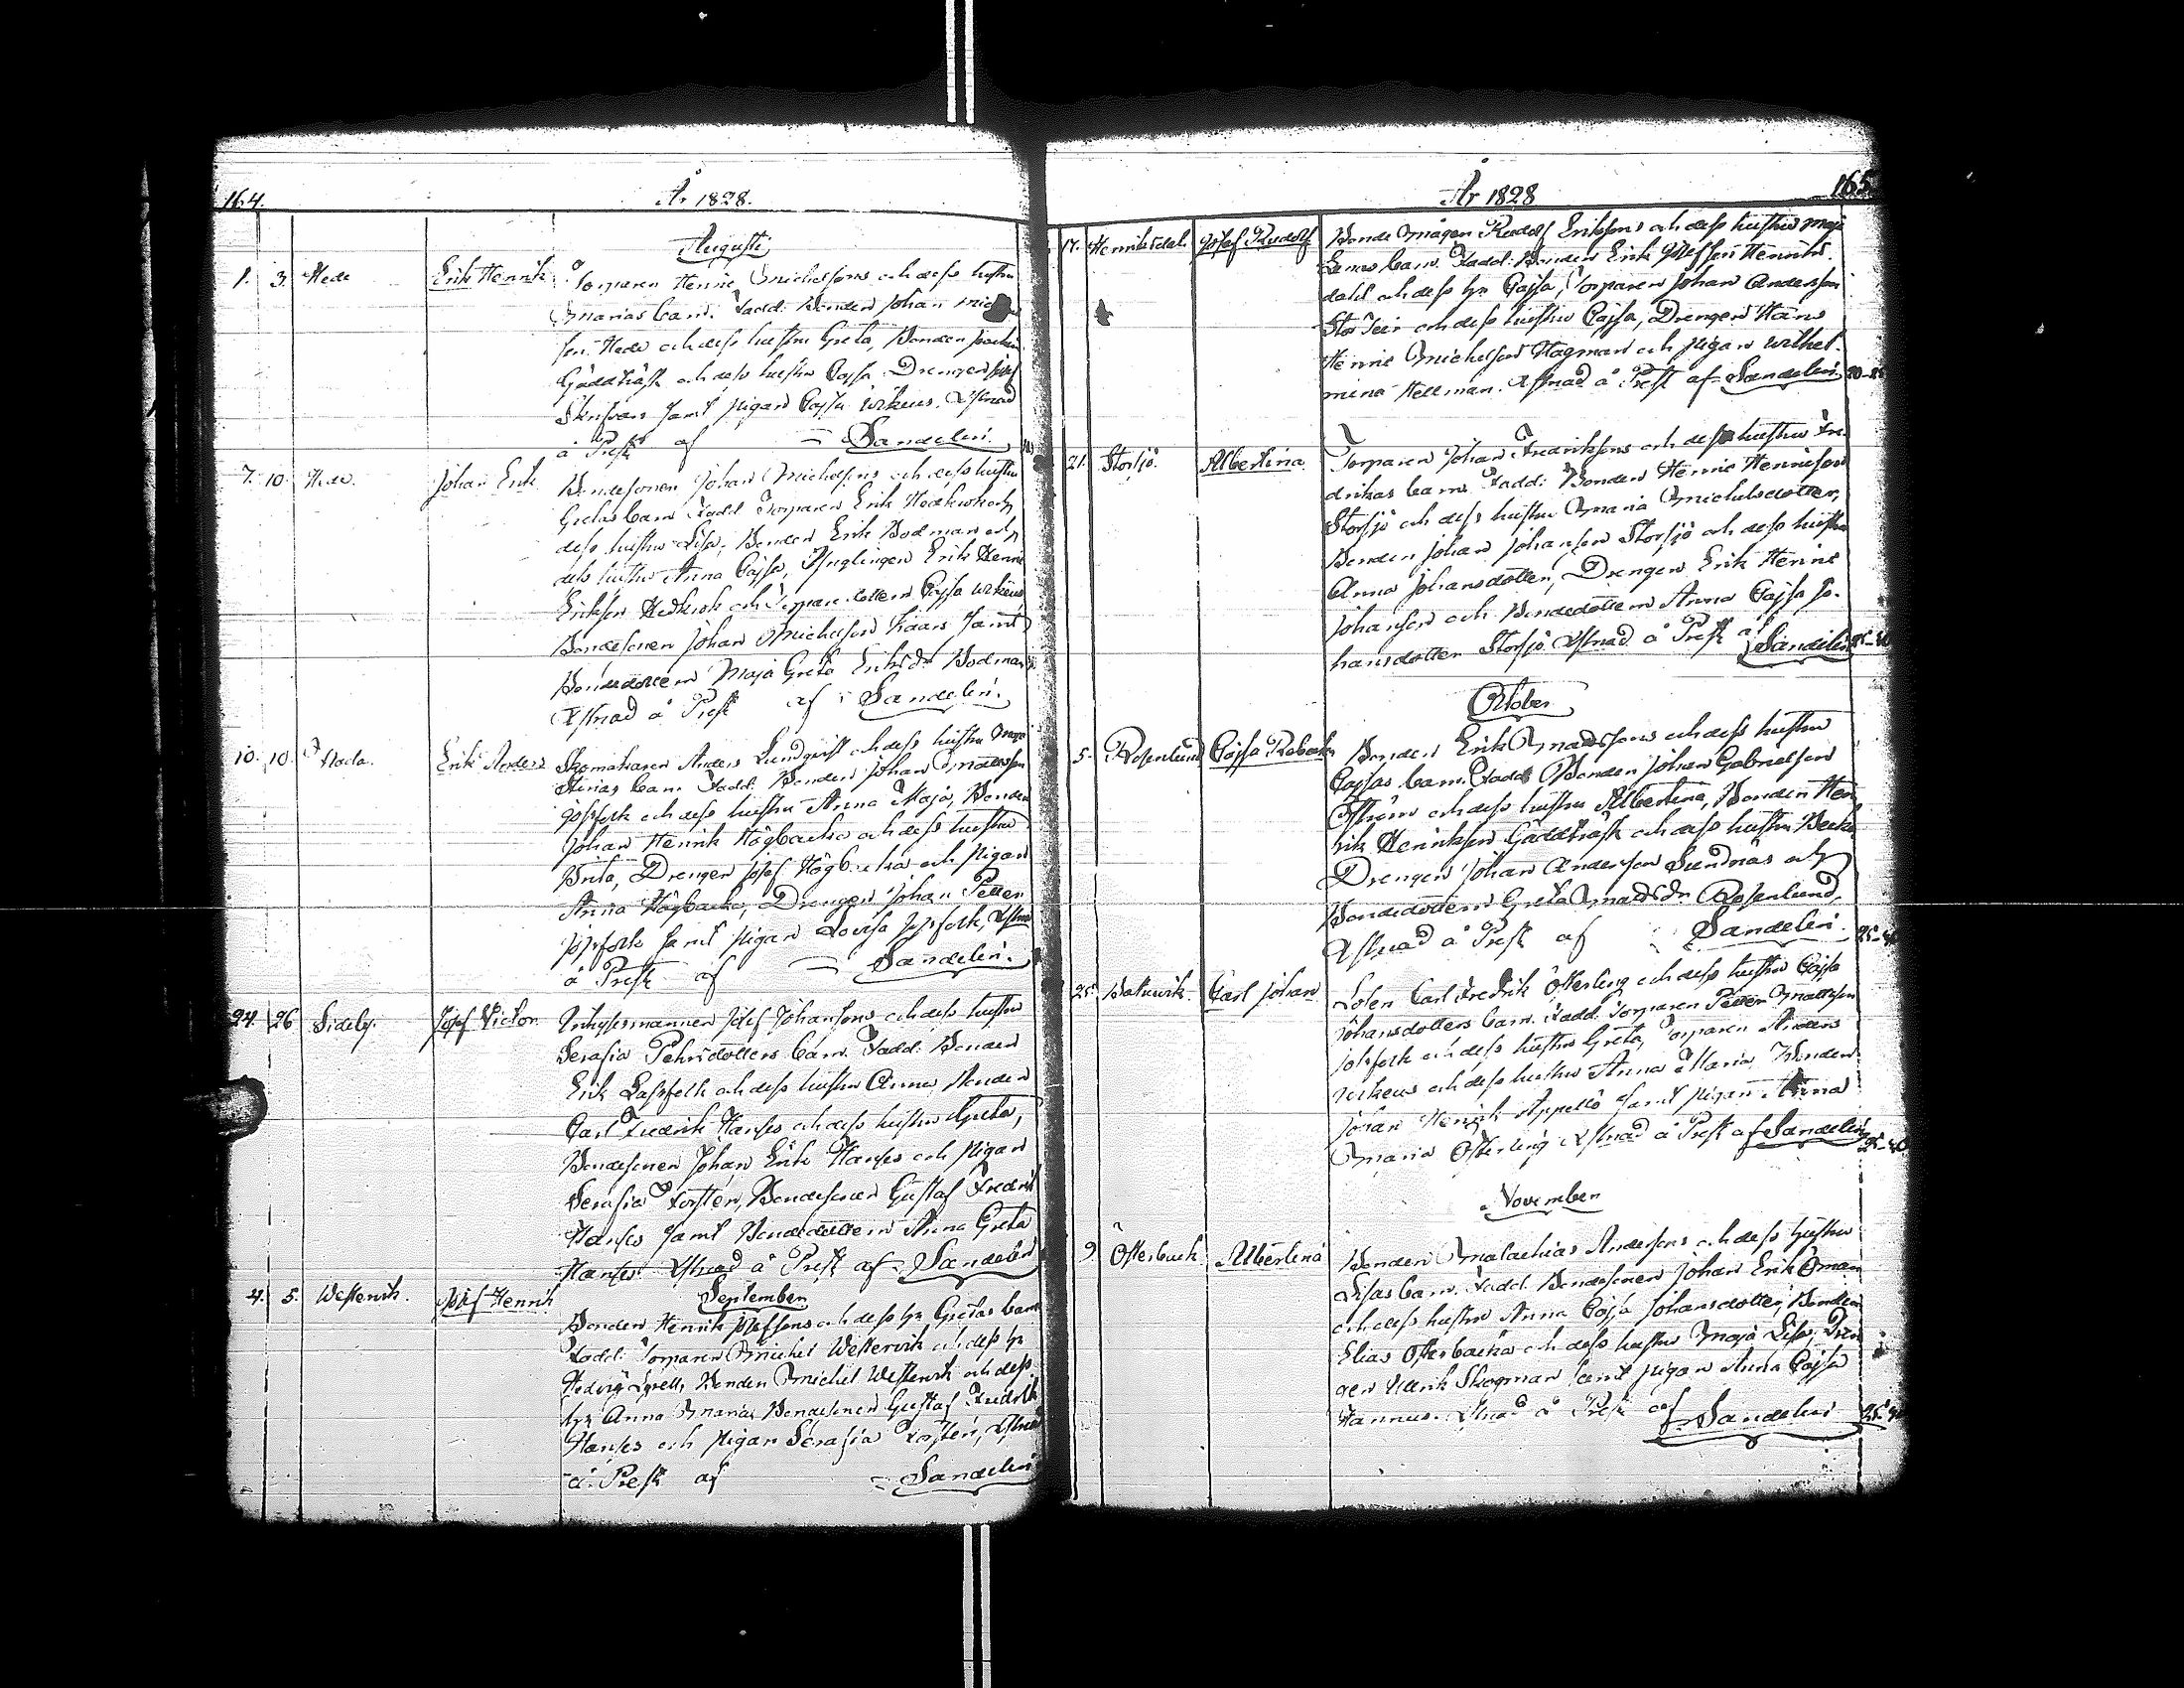 164.
År 1828.
Augusti
1. 3. Hede Erik Henrik Torparen Henric Michelsons och dess hustru
Marias barn. Fadd: Bonden Johan Mic
son Hede och dess hustru Greta, Bonden
Gäddträsk och dess hustru Cajsa Drengen
Skrifvars samt pigan Cajsa Wikeus. Astnad
å Prest af Sandelin.
7. 10. Hede. Johan Erik Bondesonen Johan Michelsons och dess hustru
Gretas barn Fadd Torparen Erik Hedkrok och
dess hustru Lisa, Bonden Erik Bodman och
dess hustru Anna Cajsa, Ynglingen Erik Henric
Eriksson Hedkrok och Torpare dottern Cajsa Wikeus
Bondesonen Johan Michelson Kaars samt
Bondedottern Maja Greta Eriksdr Bodman
Astnad å Prest af Sandelin.
10. 10. Nada. Erik Anders Skomakaren Anders Lundqvist och dess hustru Maja
Stinas barn Fadd: Bonden Johan Mattsson
Jossfolk och dess hustru Anna Maja, Bonden
Johan Henrik Högbacka och dess hustru
Brita, Drengen Josef Högbacka och Pigan
Anna Högbacka, Drengen Johan Petter
Jossfolk samt Pigan Lovisa Jossfolk, Astnad
å Prest af Sandelin.
24. 26 Sideby. Josef Victor Inhysesmannen Josef Johansons och dess hustru
Serafia Pehrsdotters barn. Fadd: Bonden
Erik Lassfolk och dess hustru Anna Bonden
Carl Fredrik Hanses och dess hustru Greta,
Bondesonen Johan Erik Hanses och Pigan
Serafia Forsten, Bondesonen Gustaf Fredrik
Hanses samt Bondedottern Anna Greta
Hanses. Astnad å Prest af Sandelin
September
4. 5. Westervik. Josef Henrik Bonden Henrik Josefsons och dess hr Gretas barn
Fadd: Torparen Michel Westervik och dess hr
Hedvig Sprett, Bonden Michel Westervik och dess
hr Anna Maria, Bondesonen Gustaf Fredrik
Hanses och Pigan Serafia Forsten, Astnad
å Prest af Sandelin
165
År 1828
17. Henriksdal. Josef Rudolf Bonde Mågen Rudolf Erikssons och dess hustru Maja
Lenas barn. Fadd: Bonden Erik Josefson Henriks-
dahl och dess hr Cajsa, Torparen Johan Andersson
Stor Teir och dess hustru Cajsa, Drengen Hans
Henric Michelson Hagman och Pigan Wilhel-
mina Hellman. Astnad å Prest af Sandelin
21. Storsjö. Albertina Torparen Johan Fredrikssons och dess hustru Fre-
drikas barn. Fadd: Bonden Henric Henricson
Storsjö och dess hustru Maria Michelsdotter,
Bonden Johan Johanson Storsjö och dess hustru
Anna Johansdotter, Drengen Erik Henric
Johanson och Bondedottern Anna Cajsa Jo-
hansdotter Storsjö Astnad å Prest af Sandelin
October
5. Rosenlund Cajsa Rebecka Bonden Erik Madssons och dess hustru
Cajsas barn. Fadd Bonden Johan Gabrielsson
Öström och dess hustru Albertina, Bonden Hen
rik Henriksson Gäddträsk och dess hustru Becka
Drengen Johan Anderson Sundnäs och
Bondedottern Greta Madsdr Rosenlund,
Astnad å Prest af Sandelin. 25-40
25. Bakuvik. Carl Johan Loten Carl Fredrik Österling och dess hustru Cajsa
Johansdotters barn. Fadd: Torparen Petter Mattsson
Jossfolk och dess hustru Greta, Torparen Anders
Wikeus och dess hustru Anna Maria, Bonden
Johan Henrik Appellö samt Pigan Anna
Maria Österling Astnad å Prest af Sandelin 25-40
November
9. Österback. Albertina Bonden Malachias Andersons och dess hustru
Lisas barn. Fadd: Bondesonen Johan Erik Öman
och dess hustru Anna Cajsa Johansdotter, Bonden
Elias Österbacka och dess hustru Maja Lisa, Dren
gen Henrik Skogman samt Pigan Anna Cajsa
Hannus. Astnad å Prest af Sandelin 25-40